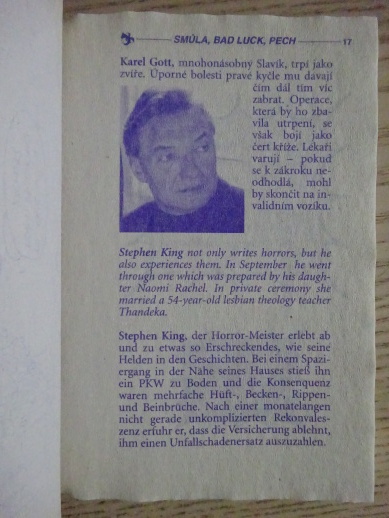 SMŮLA, BAD LUCK, PECH 17
Karel Gott, mnohonásobný Slavík, trpí jako
zvíře. Úporné bolesti pravé kyčle mu dávají
čím dál tím víc
zabrat. Operace,
která by ho zba-
vila utrpení, se
však bojí jako
čert kříže. Lékaři
varují – pokud
se k zákroku ne-
odhodlá, mohl
by skončit na in-
validním vozíku.
Stephen King not only writes horrors, but he
also experiences them. In September he went
through one which was prepared by his daugh-
ter Naomi Rachel. In private ceremony she
married a 54-year-old lesbian theology teacher
Thandeka.
Stephen King, der Horror-Meister erlebt ab
und zu etwas so Erschreckendes, wie seine
Helden in den Geschichten. Bei einem Spazi-
ergang in der Nähe seines Hauses stieß ihn
ein PKW zu Boden und die Konsequenz
waren mehrfache Hüft-, Becken-, Rippen-
und Beinbrüche. Nach einer monatelangen
nicht gerade unkomplizierten Rekonvales-
zenz erfuhr er, dass die Versicherung ablehnt,
ihm einen Unfallschadenersatz auszuzahlen.